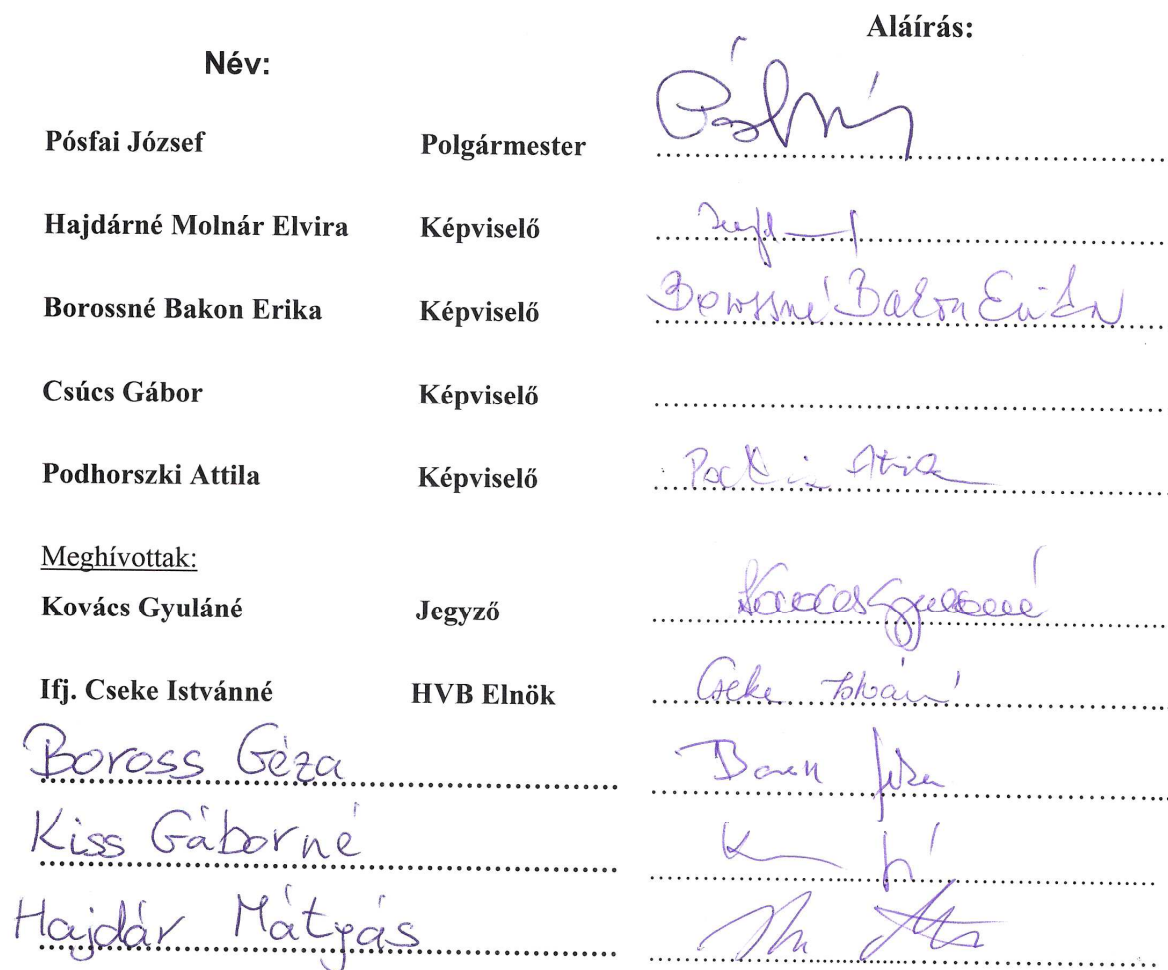 Név: Aláírás:
Pósfai József Polgármester
Hajdárné Molnár Elvira Képviselő
Borossné Bakon Erika Képviselő Borossné Bakon Erika
Csúcs Gábor Képviselő
Podhorszki Attila Képviselő Attila
Meghívottak:
Kovács Gyuláné Jegyző Kovács Gyuláné
Ifj. Cseke Istvánné HVB Elnök Cseke Istvánné
Boross Géza
Kiss Gáborné
Hajdár Mátyás